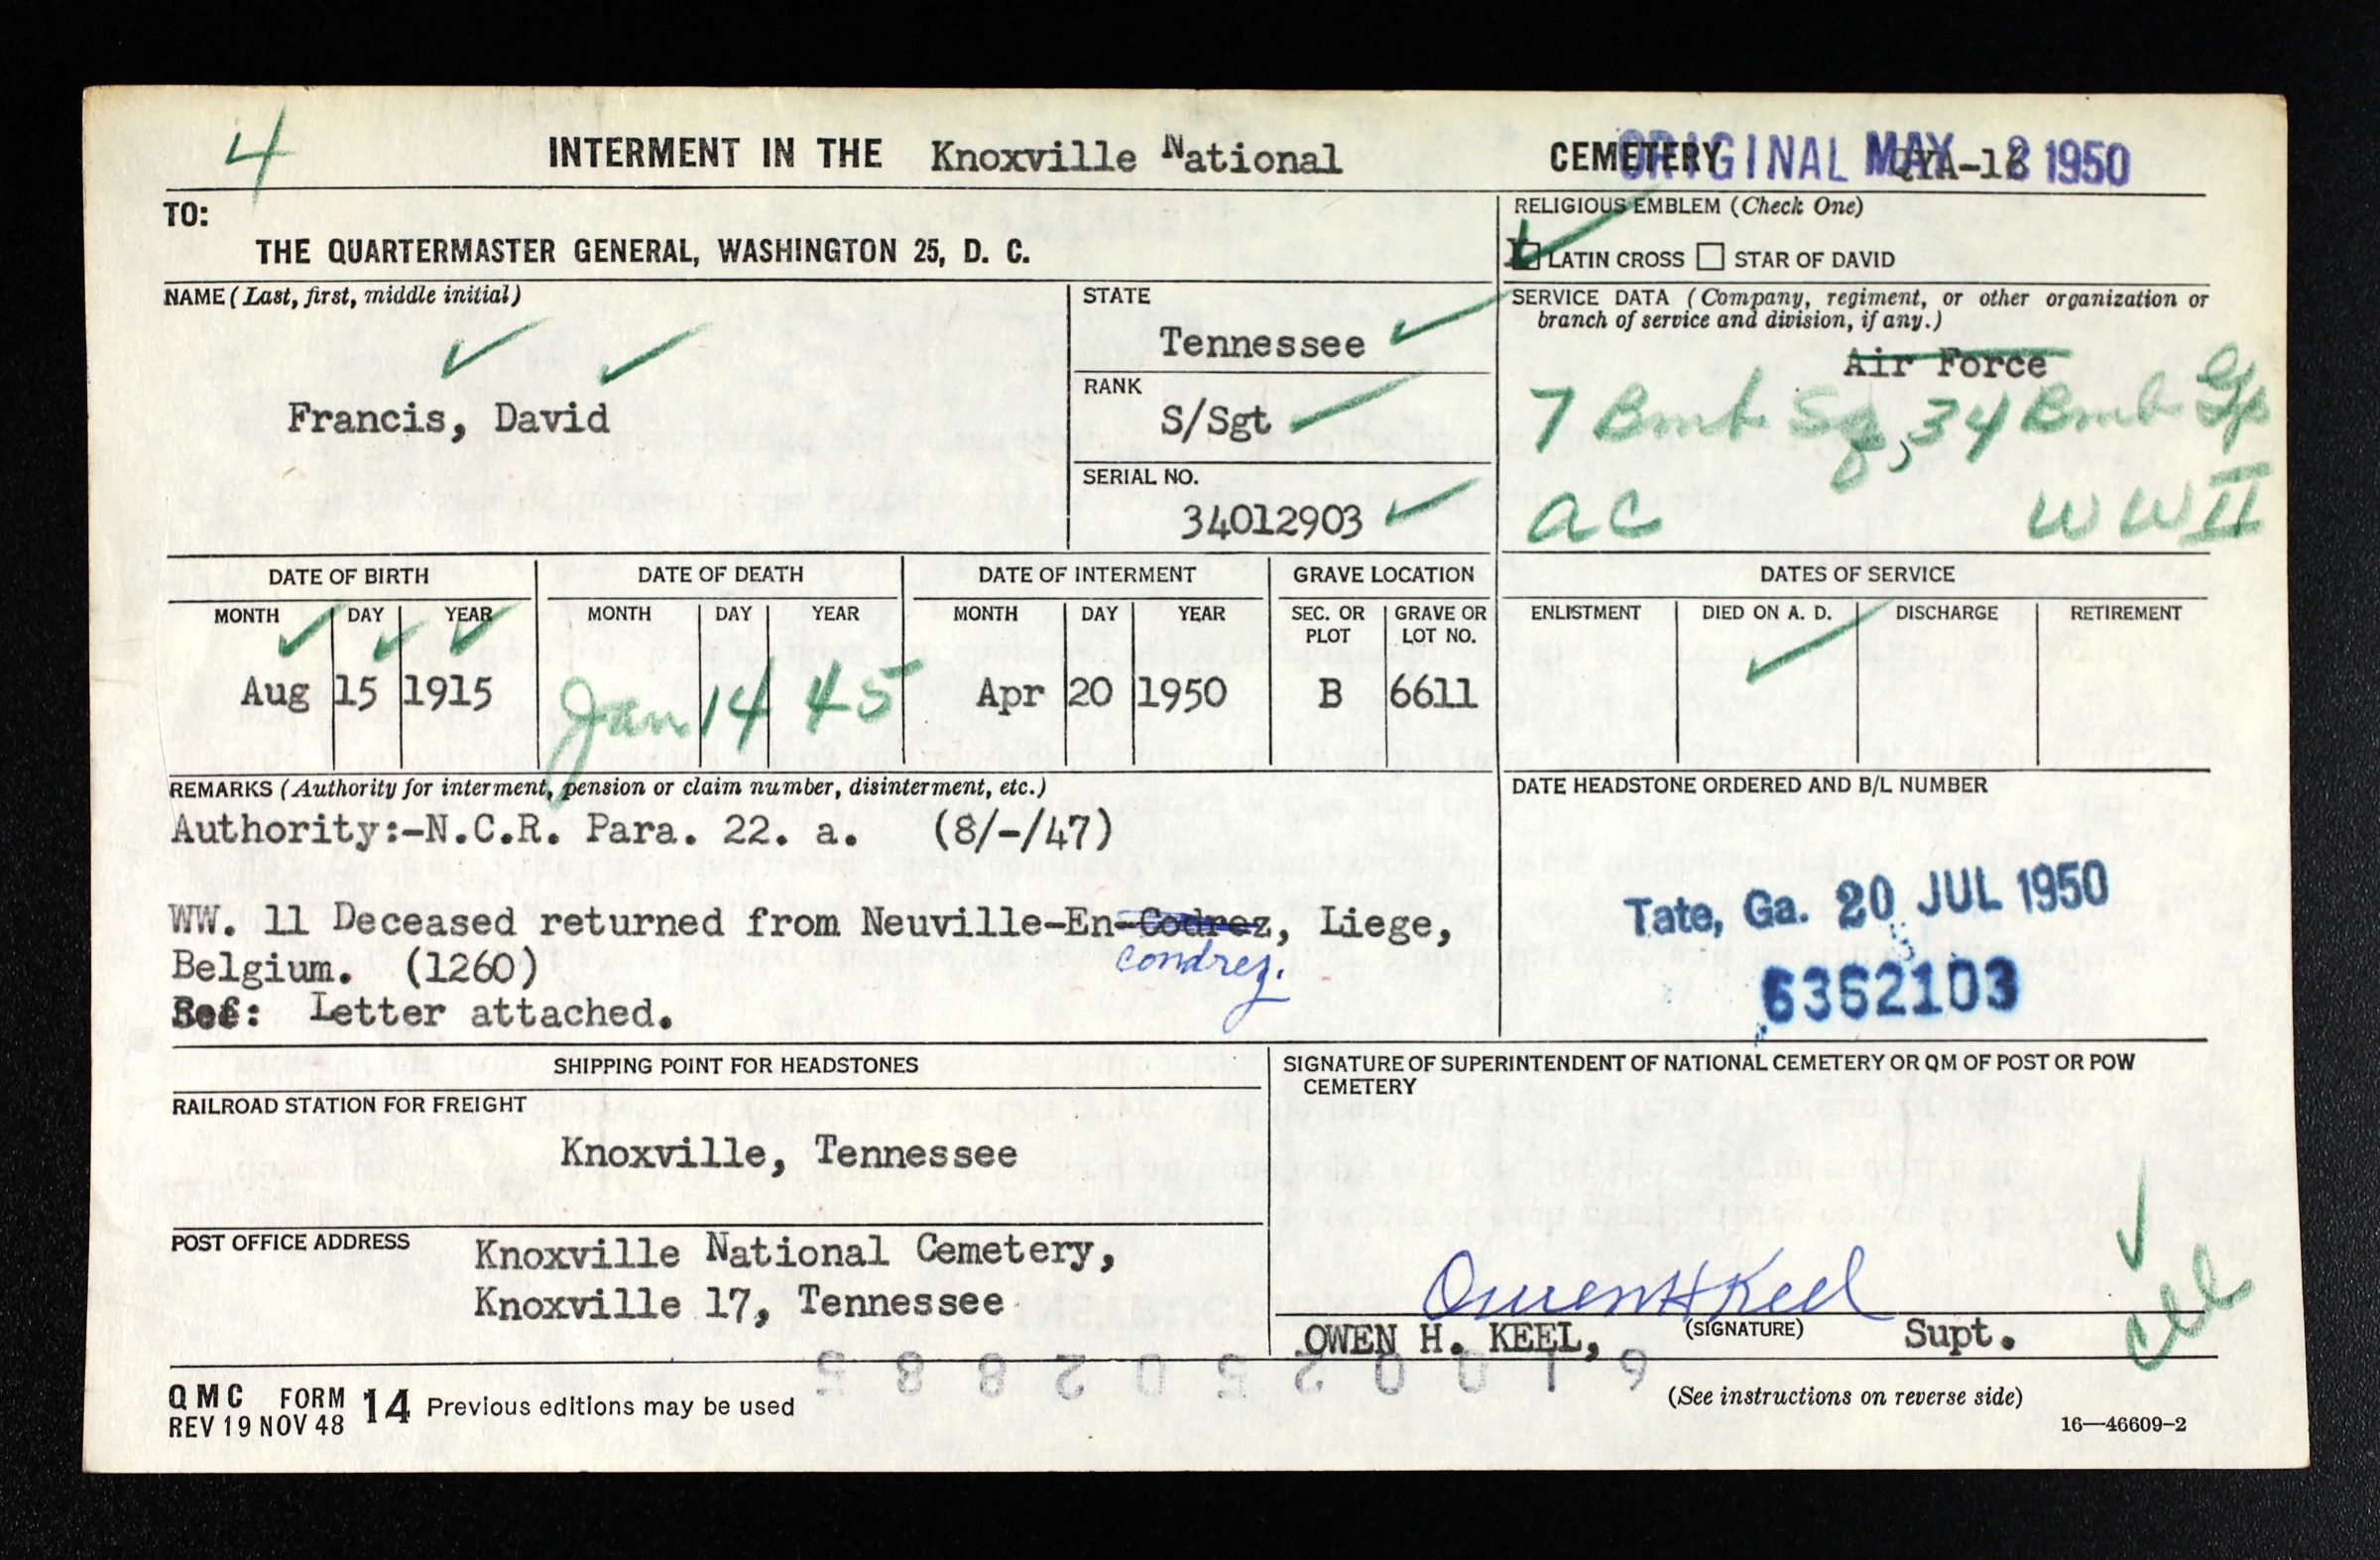 4
INTERMENT IN THE Knoxville National CEMETERY ORIGINAL MAY 1950
TO:
THE QUARTERMASTER GENERAL, WASHINGTON 25, D. C.
RELIGIOUS EMBLEM (Check One)
LATIN CROSS STAR OF DAVID
NAME (Last, first, middle initial)
Francis, David
STATE
Tennessee
RANK
S/Sgt
SERIAL NO.
34012903
SERVICE DATA (Company, regiment, or other organization or
branch of service and division, if any.)
Air Force
7 Bmb Sq, 34 Bmb Gp
AC WWII
DATE OF BIRTH DATE OF DEATH DATE OF INTERMENT GRAVE LOCATION DATES OF SERVICE
MONTH DAY YEAR MONTH DAY YEAR MONTH DAY YEAR SEC. OR PLOT GRAVE OR LOT NO. ENLISTMENT DIED ON A. D. DISCHARGE RETIREMENT
Aug 15 1915 Jan 14 45 Apr 20 1950 B 6611
REMARKS (Authority for interment, pension or claim number, disinterment, etc.)
Authority:-N.C.R. Para. 22. a. (8/-/47)
WW. 11 Deceased returned from Neuville-En-Codrez, Liege,
Condrez.
Belgium. (1260)
Letter attached.
DATE HEADSTONE ORDERED AND B/L NUMBER
Tate, Ga. 20 JUL 1950
6362103
SHIPPING POINT FOR HEADSTONES
RAILROAD STATION FOR FREIGHT
Knoxville, Tennessee
POST OFFICE ADDRESS
Knoxville National Cemetery,
Knoxville 17, Tennessee
SIGNATURE OF SUPERINTENDENT OF NATIONAL CEMETERY OR QM OF POST OR POW
CEMETERY
Owen H Keel
OWEN H. KEEL, (SIGNATURE) Supt.
QMC FORM 14 Previous editions may be used
REV 19 NOV 48
(See instructions on reverse side)
16—46609-2